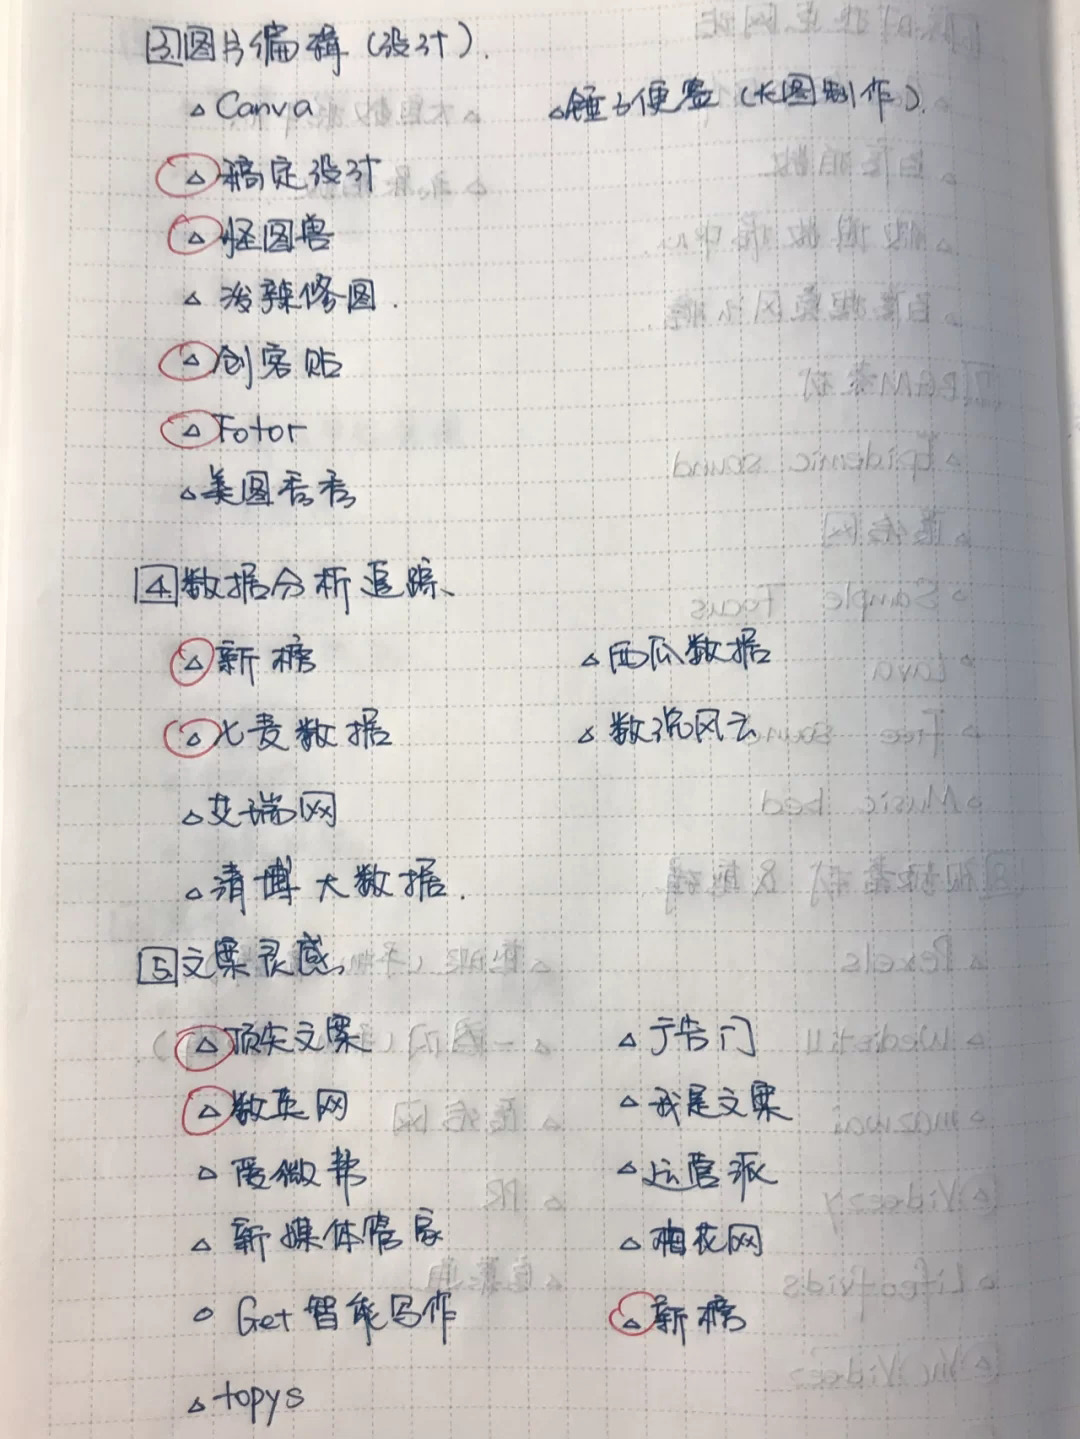 3 图片编辑（设计）.
△ Canva
△ 锤子便签（长图制作）.
△ 稿定设计
△ 怪图兽
△ 泼辣修图.
△ 创客贴
△ Fotor
△ 美图秀秀
4 数据分析追踪、
△ 新榜
△ 西瓜数据
△ 七麦数据
△ 数说风云
△ 艾瑞网
△ 清博大数据.
5 文案灵感、
△ 顶尖文案
△ 广告门
△ 数英网
△ 我是文案
△ 爱微帮
△ 运营派
△ 新媒体管家
△ 梅花网
○ Get智能写作
△ 新榜
△ topys